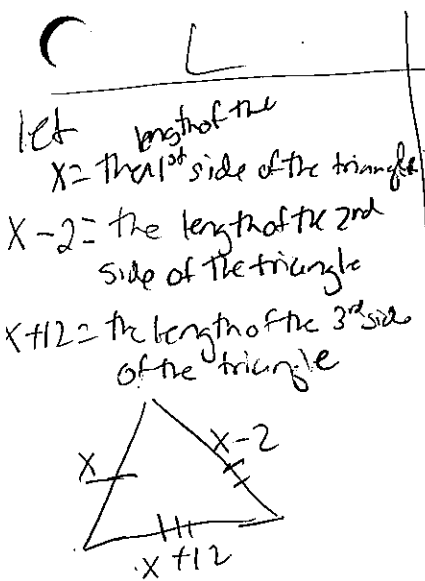 let length of the
x = the 1st side of the triangle
x - 2 = the length of the 2nd
side of the triangle
x + 12 = the length of the 3rd side
of the triangle
x
x - 2
x + 12